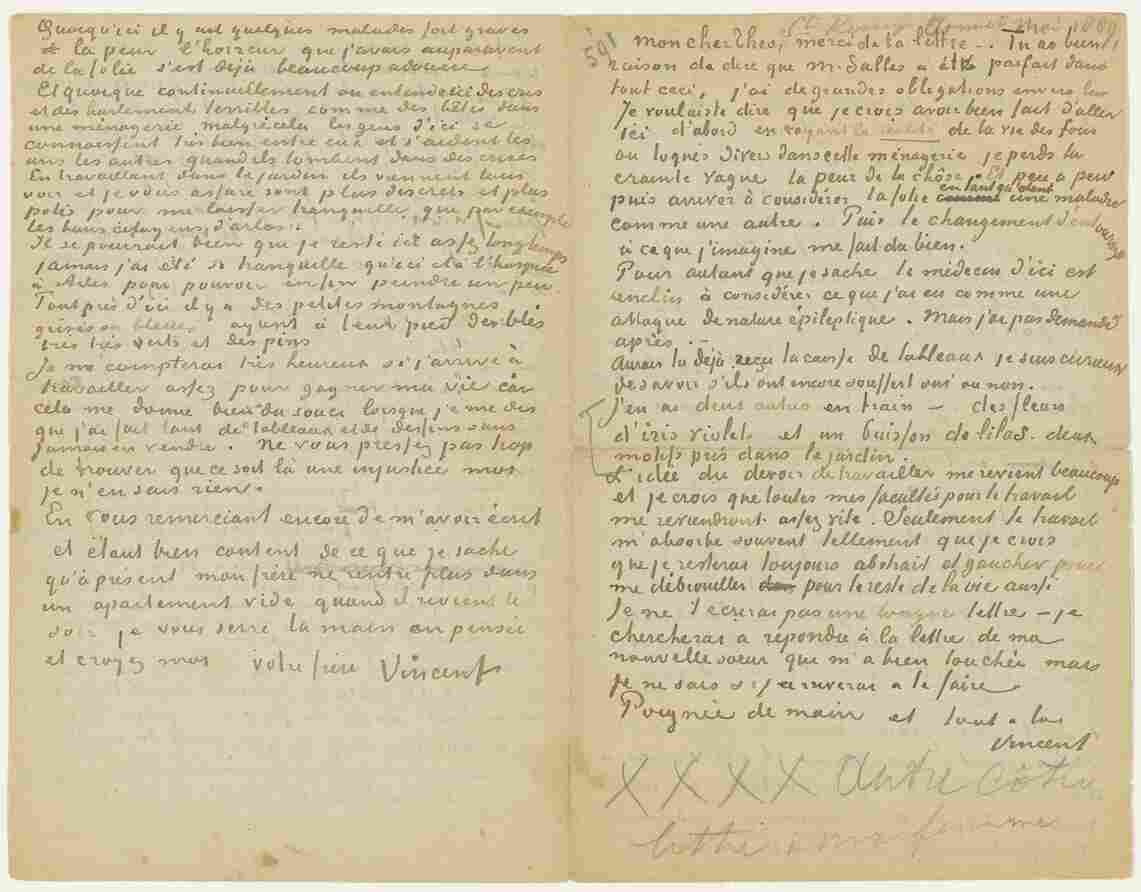 Quoiqu'ici il y ait quelques malades fort graves
la peur l'horreur que j'avais auparavant
de la folie s'est déjà beaucoup adoucie
Et quoique continuellement on entende ici des cris
et des hurlements terribles comme des bêtes dans
une ménagerie malgré cela les gens d'ici se
connaissent très bien entre eux et s'aident les
uns les autres quand ils tombent dans des crises
En travaillant dans le jardin ils viennent tous
voir et je vous assure sont plus discrets et plus
polis pour me laisser tranquille que par exemple
les bons citoyens d'Arles.
Il se pourrait bien que je reste ici assez longtemps
jamais j'ai été si tranquille qu'ici et à l'hospice
à Arles pour pouvoir enfin peindre un peu
Tout près d'ici il y a des petites montagnes
grises ou bleues ayant à leur pied des blés
très très verts et des pins
Je me compterai très heureux si j'arrive à
travailler assez pour gagner ma vie car
cela me donne bien du souci lorsque je me dis
que j'ai fait tant de tableaux et de dessins sans
jamais en vendre. Ne vous pressez pas trop
de trouver que ce soit là une injustice moi
je n'en sais rien.
En vous remerciant encore de m'avoir écrit
et étant bien content de ce que je sache
qu'à présent mon frère ne rentre plus dans
un apartement vide quand il revient le
soir je vous serre la main en pensée
et croyez moi votre frère Vincent
591 St Remy Mai 1889
Mon cher Theo, merci de ta lettre. Tu as bien
raison de dire que M. Salles a été parfait dans
tout ceci, j'ai de grandes obligations envers lui
Je voulais te dire que je crois avoir bien fait d'aller
ici d'abord en voyant la réalité de la vie des fous
ou toqués divers dans cette ménagerie je perds la
crainte vague la peur de la chôse. Et peu a peu
puis arriver à considérer la folie en tant qu'étant une maladie
comme une autre. Puis le changement d'entourage
à ce que j'imagine me fait du bien.
Pour autant que je sache le médecin d'ici est
enclin à considérer ce que j'ai eu comme une
attaque de nature épileptique. Mais j'ai pas demandé
après.
Aurais tu déjà reçu la caisse de tableaux je suis curieux
de savoir s'ils ont encore souffert oui ou non.
J'en ai deux autres en train – des fleurs
d'iris violets et un buisson de lilas. deux
motifs pris dans le jardin.
L'idée du devoir de travailler me revient beaucoup
et je crois que toutes mes facultés pour le travail
me reviendront assez vite. Seulement le travail
m'absorbe souvent tellement que je crois
que je resterai toujours abstrait et gauche pour
me débrouiller pour le reste de la vie aussi
Je ne t'écrirai pas une longue lettre – je
chercherai a répondre à la lettre de ma
nouvelle soeur qui m'a bien touché mais
je ne sais si j'arriverai a le faire.
Poignée de main et tout a toi
Vincent
X X X X autre côté
lettre à ma femme